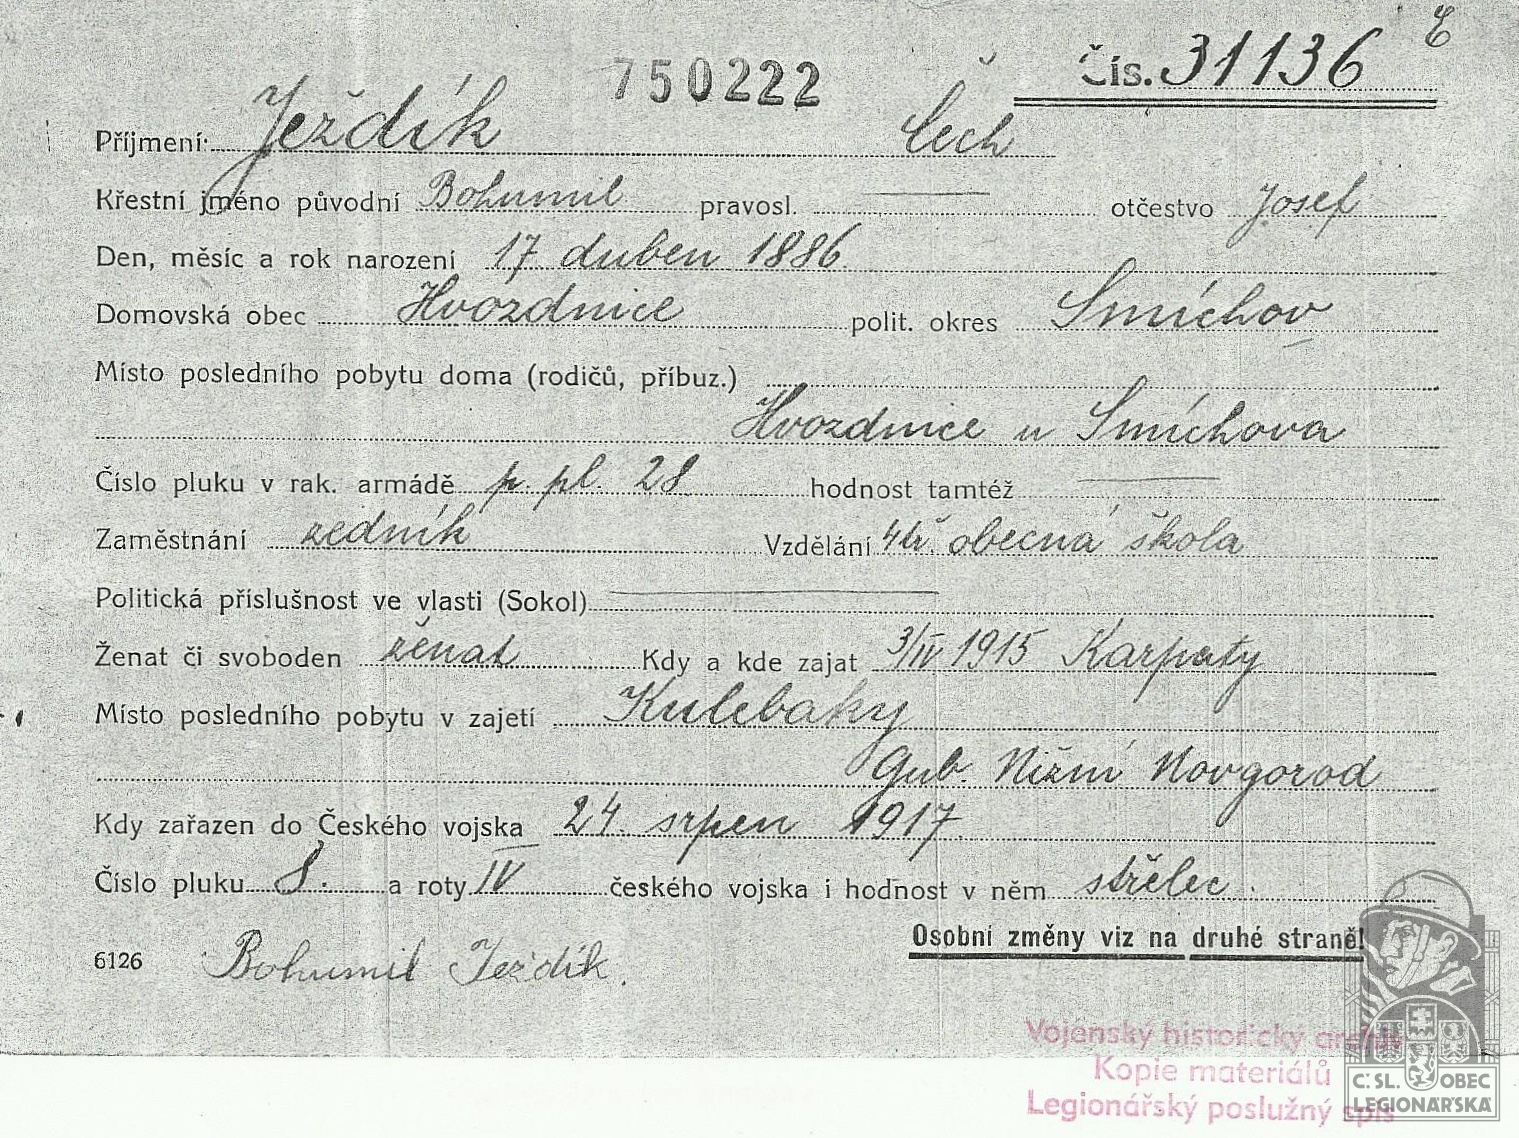 750222 Čís. 31136
Příjmení: Ježdík Čech
Křestní jméno původní Bohumil pravosl. otčestvo Josef
Den, měsíc a rok narození 17 duben 1886
Domovská obec Hvozdnice polit. okres Smíchov
Místo posledního pobytu doma (rodičů, příbuz.)
Hvozdnice u Smíchova
Číslo pluku v rak. armádě p. pl. 28 hodnost tamtéž
Zaměstnání zedník Vzdělání 4tř. obecná škola
Politická příslušnost ve vlasti (Sokol)
Ženat či svoboden ženat Kdy a kde zajat 3/IV 1915 Karpaty
Místo posledního pobytu v zajetí Kulebaky
Gub. Nižní Novgorod
Kdy zařazen do Českého vojska 24. srpen 1917
Číslo pluku 8. a roty IV českého vojska i hodnost v něm střelec.
Osobní změny viz na druhé straně!
6126 Bohumil Ježdík.
Vojenský historický archiv
Kopie materiálů
Legionářský poslužný spis
Č: SL. OBEC
LEGIONÁŘSKÁ